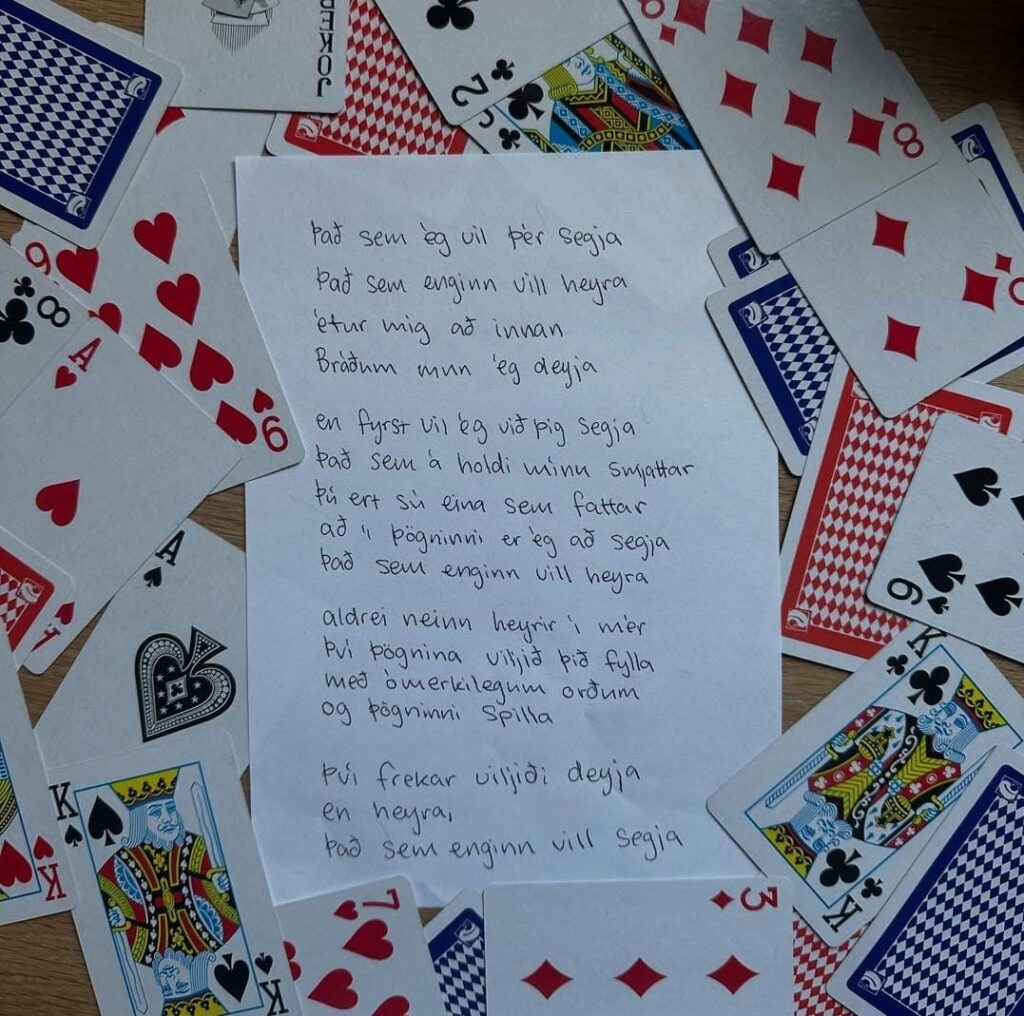 JOKER
2
J
8
9
8
A
9
A
A
6
K
Það sem ég vil þér segja
Það sem enginn vill heyra
étur mig að innan
Bráðum mun ég deyja
en fyrst vil ég við þig segja
Það sem á holdi mínu smjattar
Þú ert sú eina sem fattar
að í þögninni er ég að segja
Það sem enginn vill heyra
aldrei neinn heyrir í mér
Því þögnina viljið þið fylla
með ómerkilegum orðum
og þögninni spilla
Því frekar viljiði deyja
en heyra,
Það sem enginn vill segja
K
K
K
K
7
3